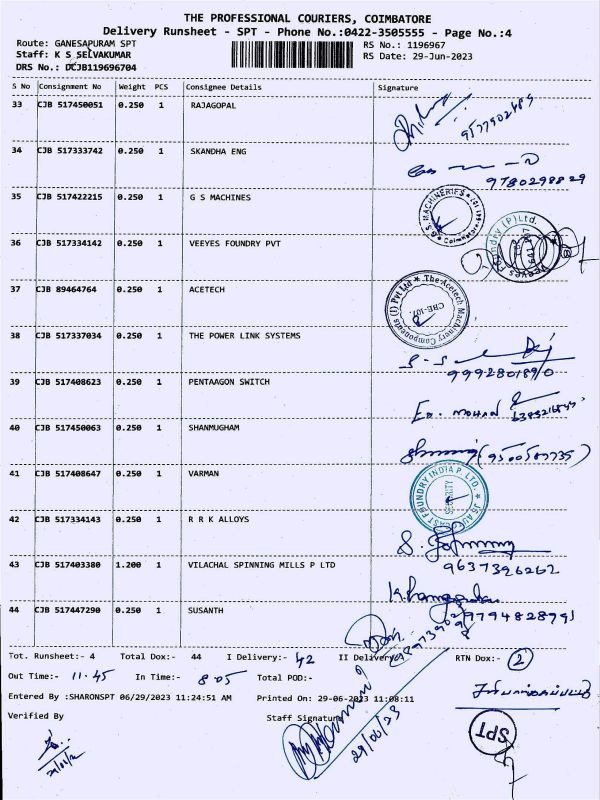 THE PROFESSIONAL COURIERS, COIMBATORE
Delivery Runsheet - SPT - Phone No.:0422-3505555 - Page No.:4
Route: GANESAPURAM SPT
RS No.: 1196967
Staff: K S SELVAKUMAR
RS Date: 29-Jun-2023
DRS No.: DCJB119696704
S No Consignment No Weight PCS Consignee Details Signature
33 CJB 517450051 0.250 1 RAJAGOPAL
34 CJB 517333742 0.250 1 SKANDHA ENG
9780298829
35 CJB 517422215 0.250 1 G S MACHINES
G.S. MACHINERIES
36 CJB 517334142 0.250 1 VEEYES FOUNDRY PVT
Veeyes Foundry (P) Ltd.
37 CJB 89464764 0.250 1 ACETECH
The Acetech Machinery Components (I) Pvt Ltd
CBE-107.
38 CJB 517337034 0.250 1 THE POWER LINK SYSTEMS
9992801890
39 CJB 517408623 0.250 1 PENTAAGON SWITCH
MOHAN
40 CJB 517450063 0.250 1 SHANMUGHAM
41 CJB 517408647 0.250 1 VARMAN
FOUNDRY INDIA P. LTD.
SECURITY
42 CJB 517334143 0.250 1 R R K ALLOYS
43 CJB 517403380 1.200 1 VILACHAL SPINNING MILLS P LTD
9637396262
44 CJB 517447290 0.250 1 SUSANTH
9794828791
Tot. Runsheet:- 4 Total Dox:- 44 I Delivery:- 42 II Delivery:- RTN Dox:- 2
Out Time:- 11-45 In Time:- 8-05 Total POD:-
Entered By :SHARONSPT 06/29/2023 11:24:51 AM Printed On: 29-06-2023 11:08:11
Verified By Staff Signature
29/06/23
SPT